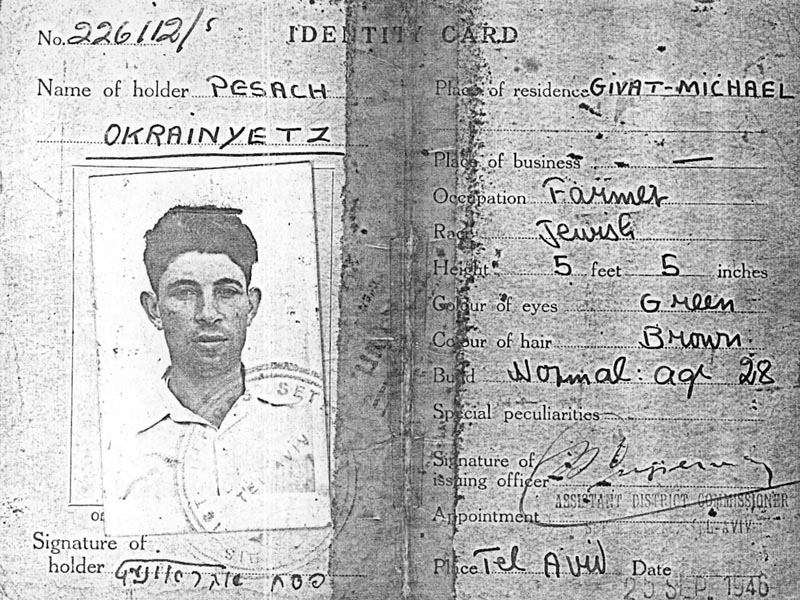 No. 226112/s
IDENTITY CARD
Name of holder PESACH
OKRAINYETZ
Signature of
holder פסח אוקראיניץ
Place of residence GIVAT-MICHAEL
Place of business —
Occupation Farmer
Race Jewish
Height 5 feet 5 inches
Colour of eyes Green
Colour of hair Brown.
Build Normal: age 28
Special peculiarities
Signature of
issuing officer
ASSISTANT DISTRICT COMMISSIONER
Appointment
TEL-AVIV
Place Tel Aviv Date
25 SEP. 1946